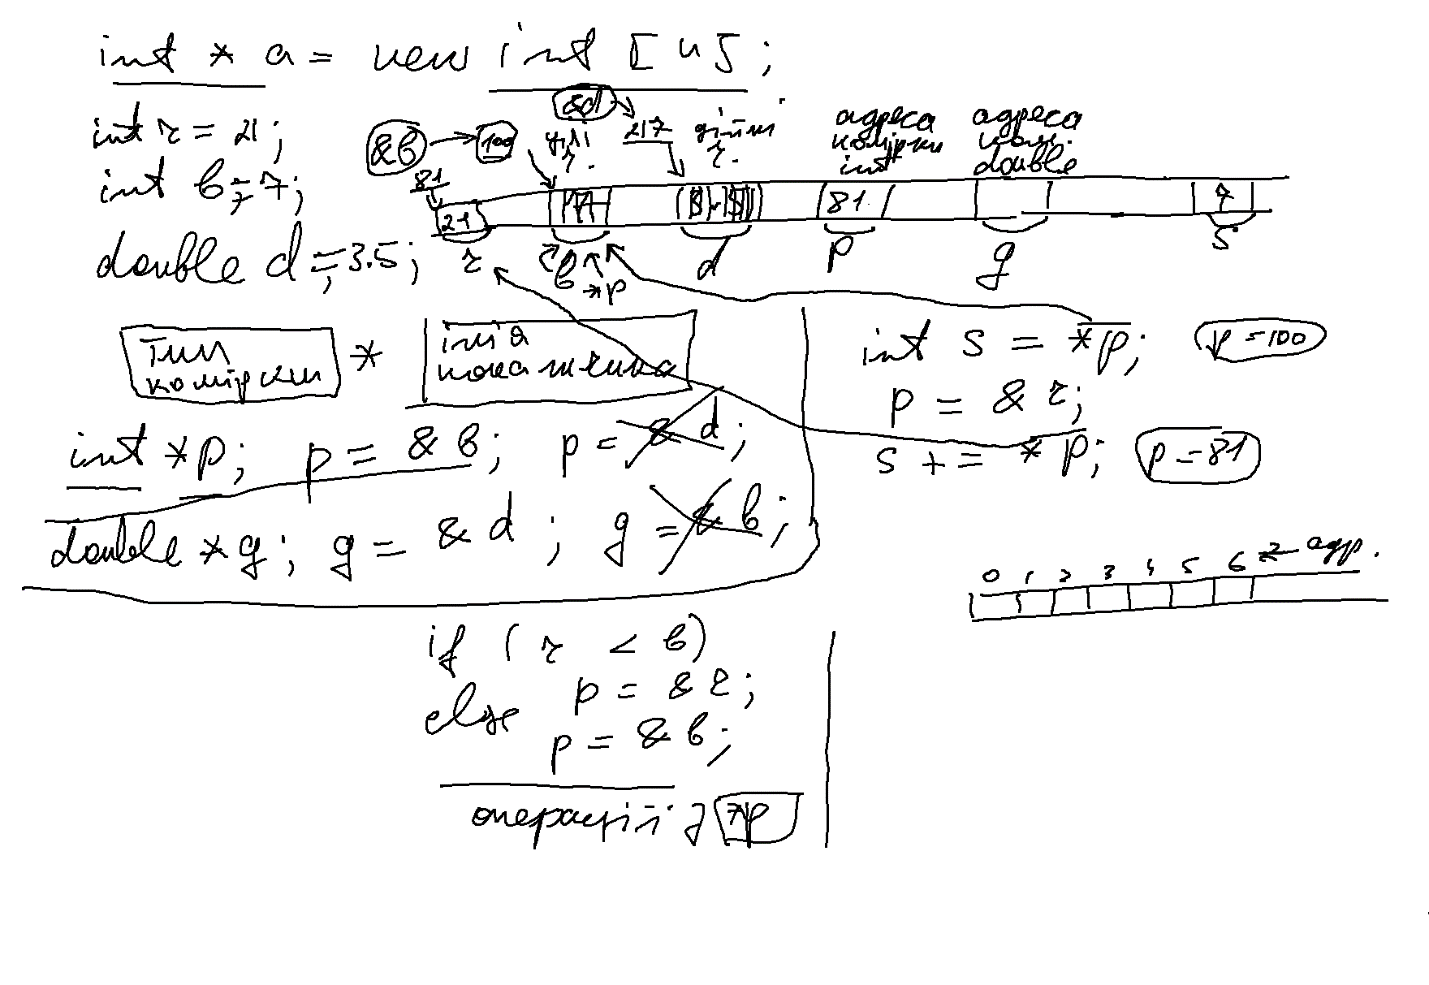 int * a = new int [n];
int r = 21;
int b = 7;
double d = 3.5;
&b
100
&d
217
цілі
ч.
дійсні
ч.
адреса
комірки
int
адреса
комі.
double
81
21
81
7
r
b
*p
d
p
g
s
тип
комірки
*
ім'я
покажчика
int *p; p = &b; p = & d;
double *g; g = & d ; g = & b;
int s = *p; p = 100
p = & r;
s += *p; p = 81
0 1 2 3 4 5 6 адр.
if ( r < b)
p = & r;
else
p = & b;
операції з *p